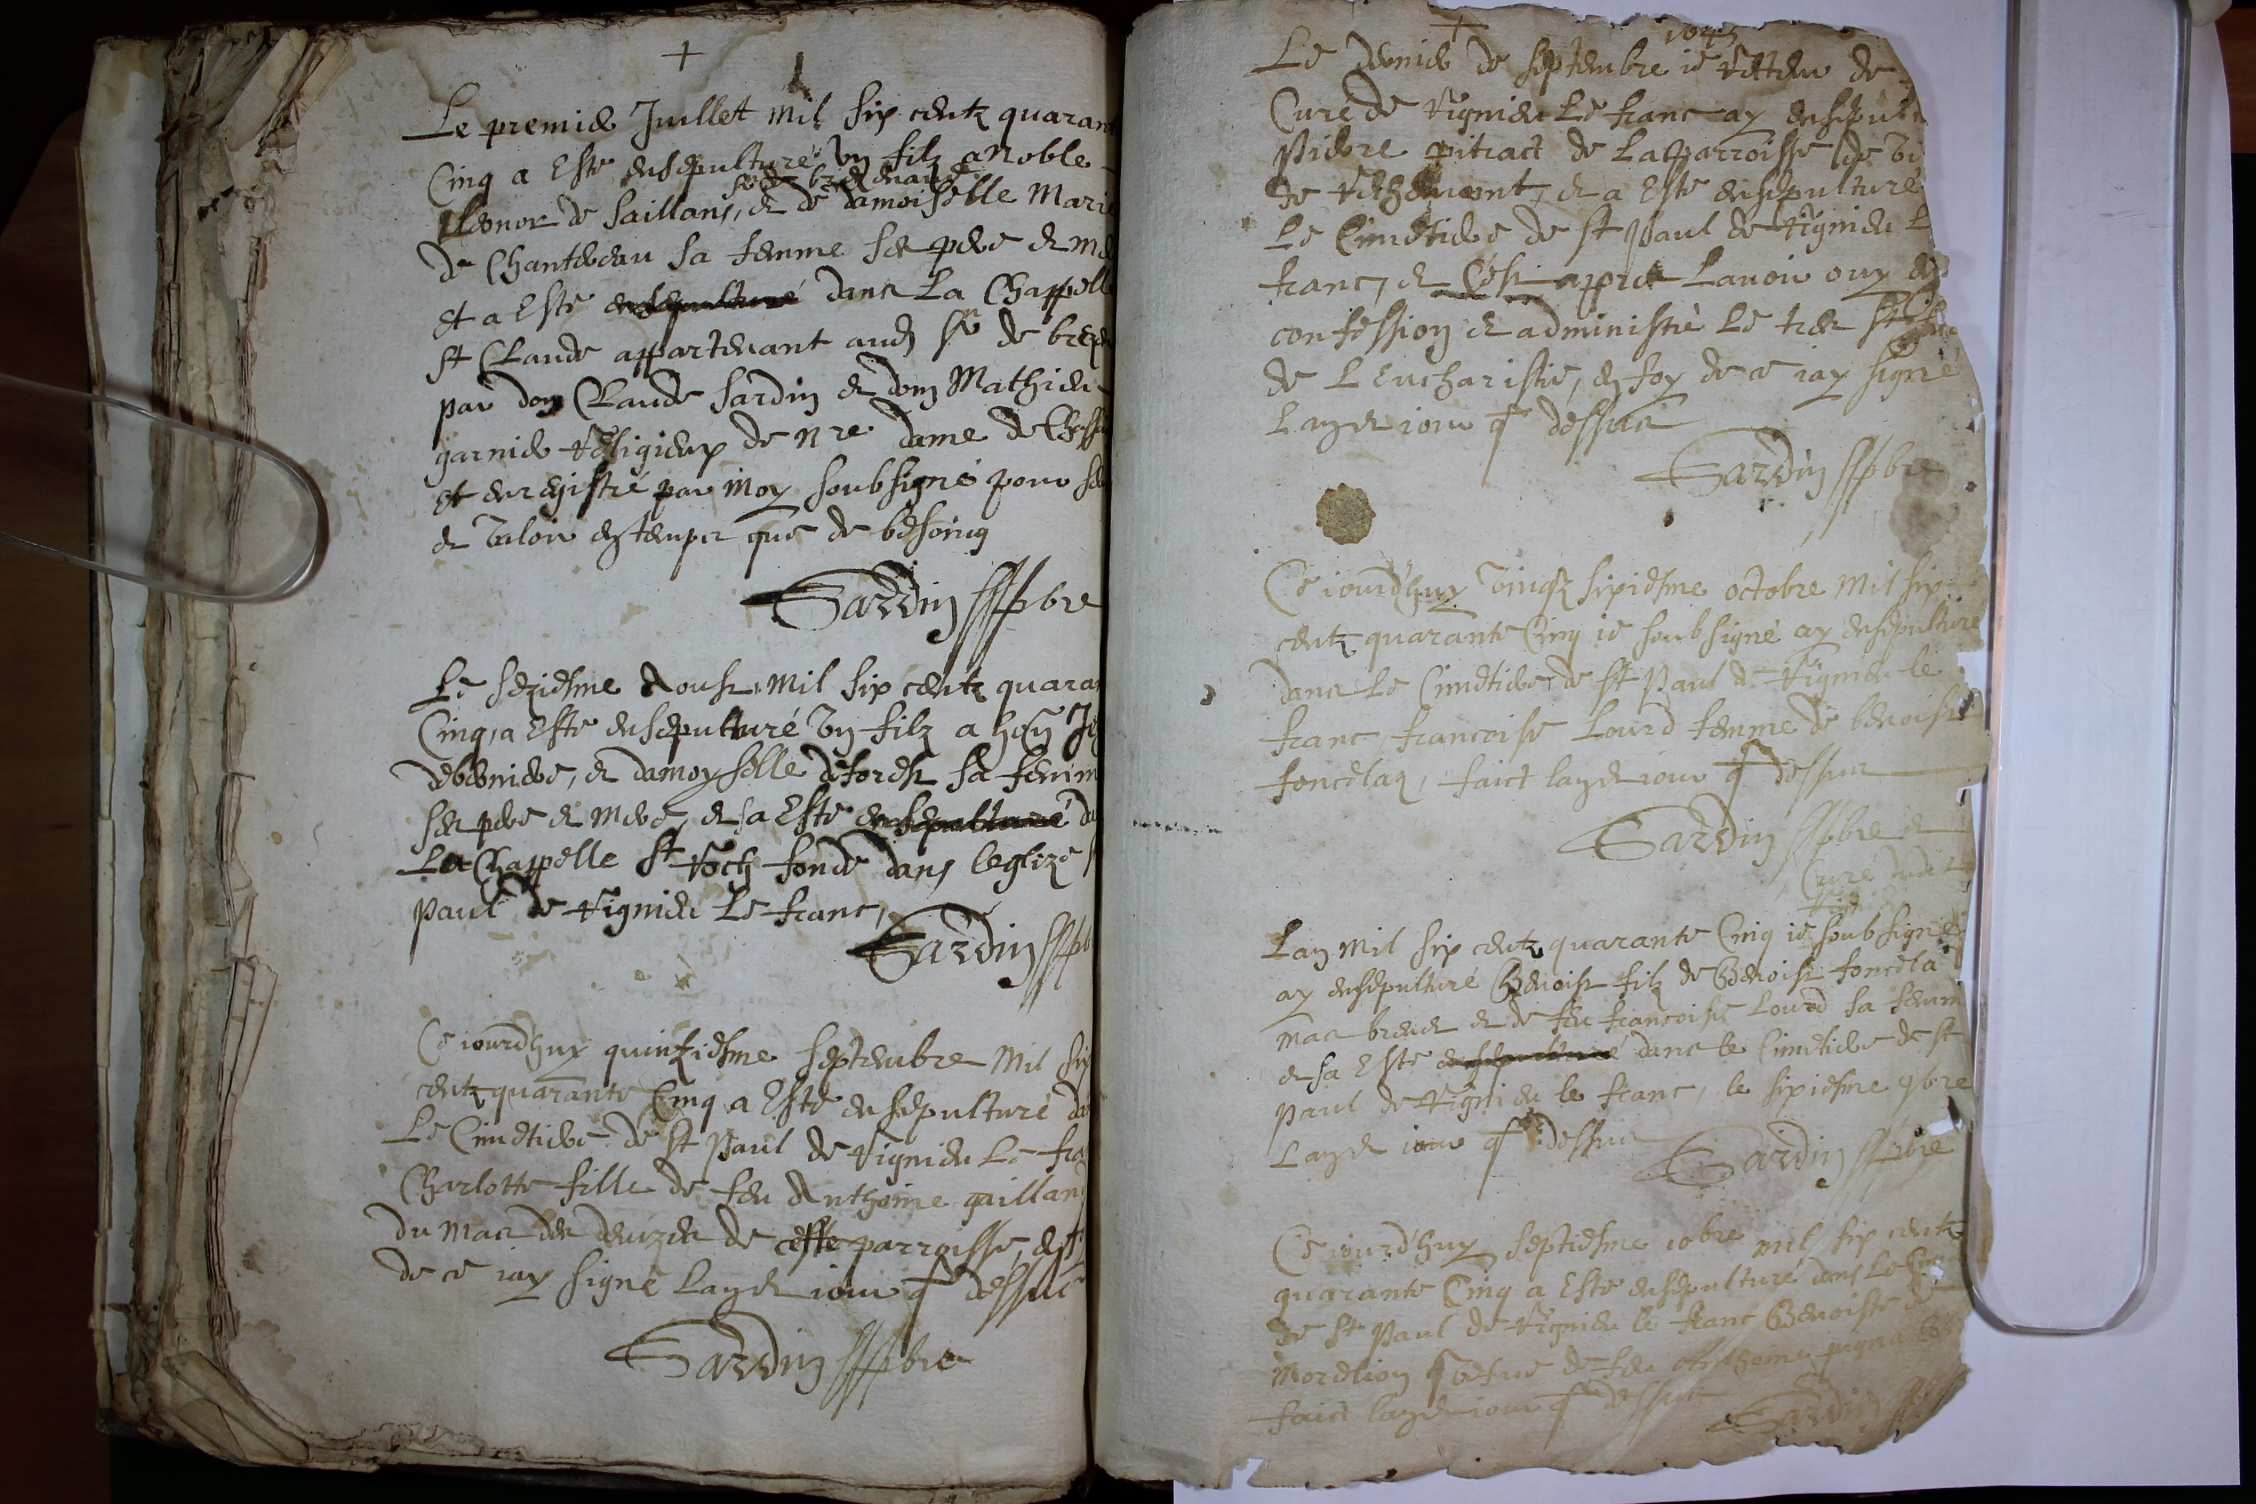 Le premier Juillet mil six centz quaran
Cinq a Esté ensepulturé un filz a Noble
sr de brezenaud
Leonor de Saillans, et de damoiselle Marie
de Chantereau sa femme ses pere et me
et a Esté ensepulturé dans La Chappelle
st Claude appartenant aud sr de breze
par dom Claude Sardin et dom Mathieu
garnier Religieux de Nre dame de
et enregistré par Moy soubsigné pour
et valoir en temps que de besoing
Sardin pbre
Le seziesme Aoust mil six centz quaran
Cinq, a Esté ensepulturé un filz a hon
et damoyselle deforest sa femm
ses pere et mere, et a Esté ensepulturé da
La Chappelle st Roch fonde dans leglize
paul de Rignieu Le franc,
Sardin pb
Ce iourdhuy quinziesme septembre Mil six
centz quarante Cinq a Esté ensepulturé da
Le Cimetiere de st Paul de Rignieu Le fra
Charlotte fille de feu Anthoine gaillan
du Mas des de ceste parroisse, en f
de ce iay signé Lan et iour q dessus
Sardin pbre
1645
Le dernier de septembre ie Recteur de
Curé de Rignieu Le franc ay ensepult
Pidere pitract de La parroisse de
de et a Esté ensepulturé
Le Cimetiere de st Paul de Rignieu L
franc, et Cest appres Lavoir ouy en
confession et administré Le tres st
de LEucharistie, en foy de ce iay signé
Lan et iour q dessus
Sardin pbre
Ce iourdhuy vingt sixiesme octobre mil six
centz quarante Cinq ie soubsigné ay ensepulturé
dans Le Cimetiere de st Paul de Rignieu le
franc, francoise Lourd femme de benoist
foncelas, faict lan et iour q dessus
Sardin pbre et
Curé dudit
Rig
Lan mil six centz quarante Cinq ie soubsigné
ay ensepulturé Benoist filz de Benoist foncela
mas et de feu francoise Lourd sa femm
et a Esté ensepulturé dans le Cimetiere de st
paul de Rignieu le franc, le sixiesme 9bre
Lan et iour q dessus
Sardin pbre
Ce iourdhuy septiesme 10bre mil six centz
quarante Cinq a Esté ensepulturé dans Le Cim
de st Paul de Rignieu le franc Benoiste
Morelion vefue de feu Anthoine
faict lan et iour q dessus
Sardin